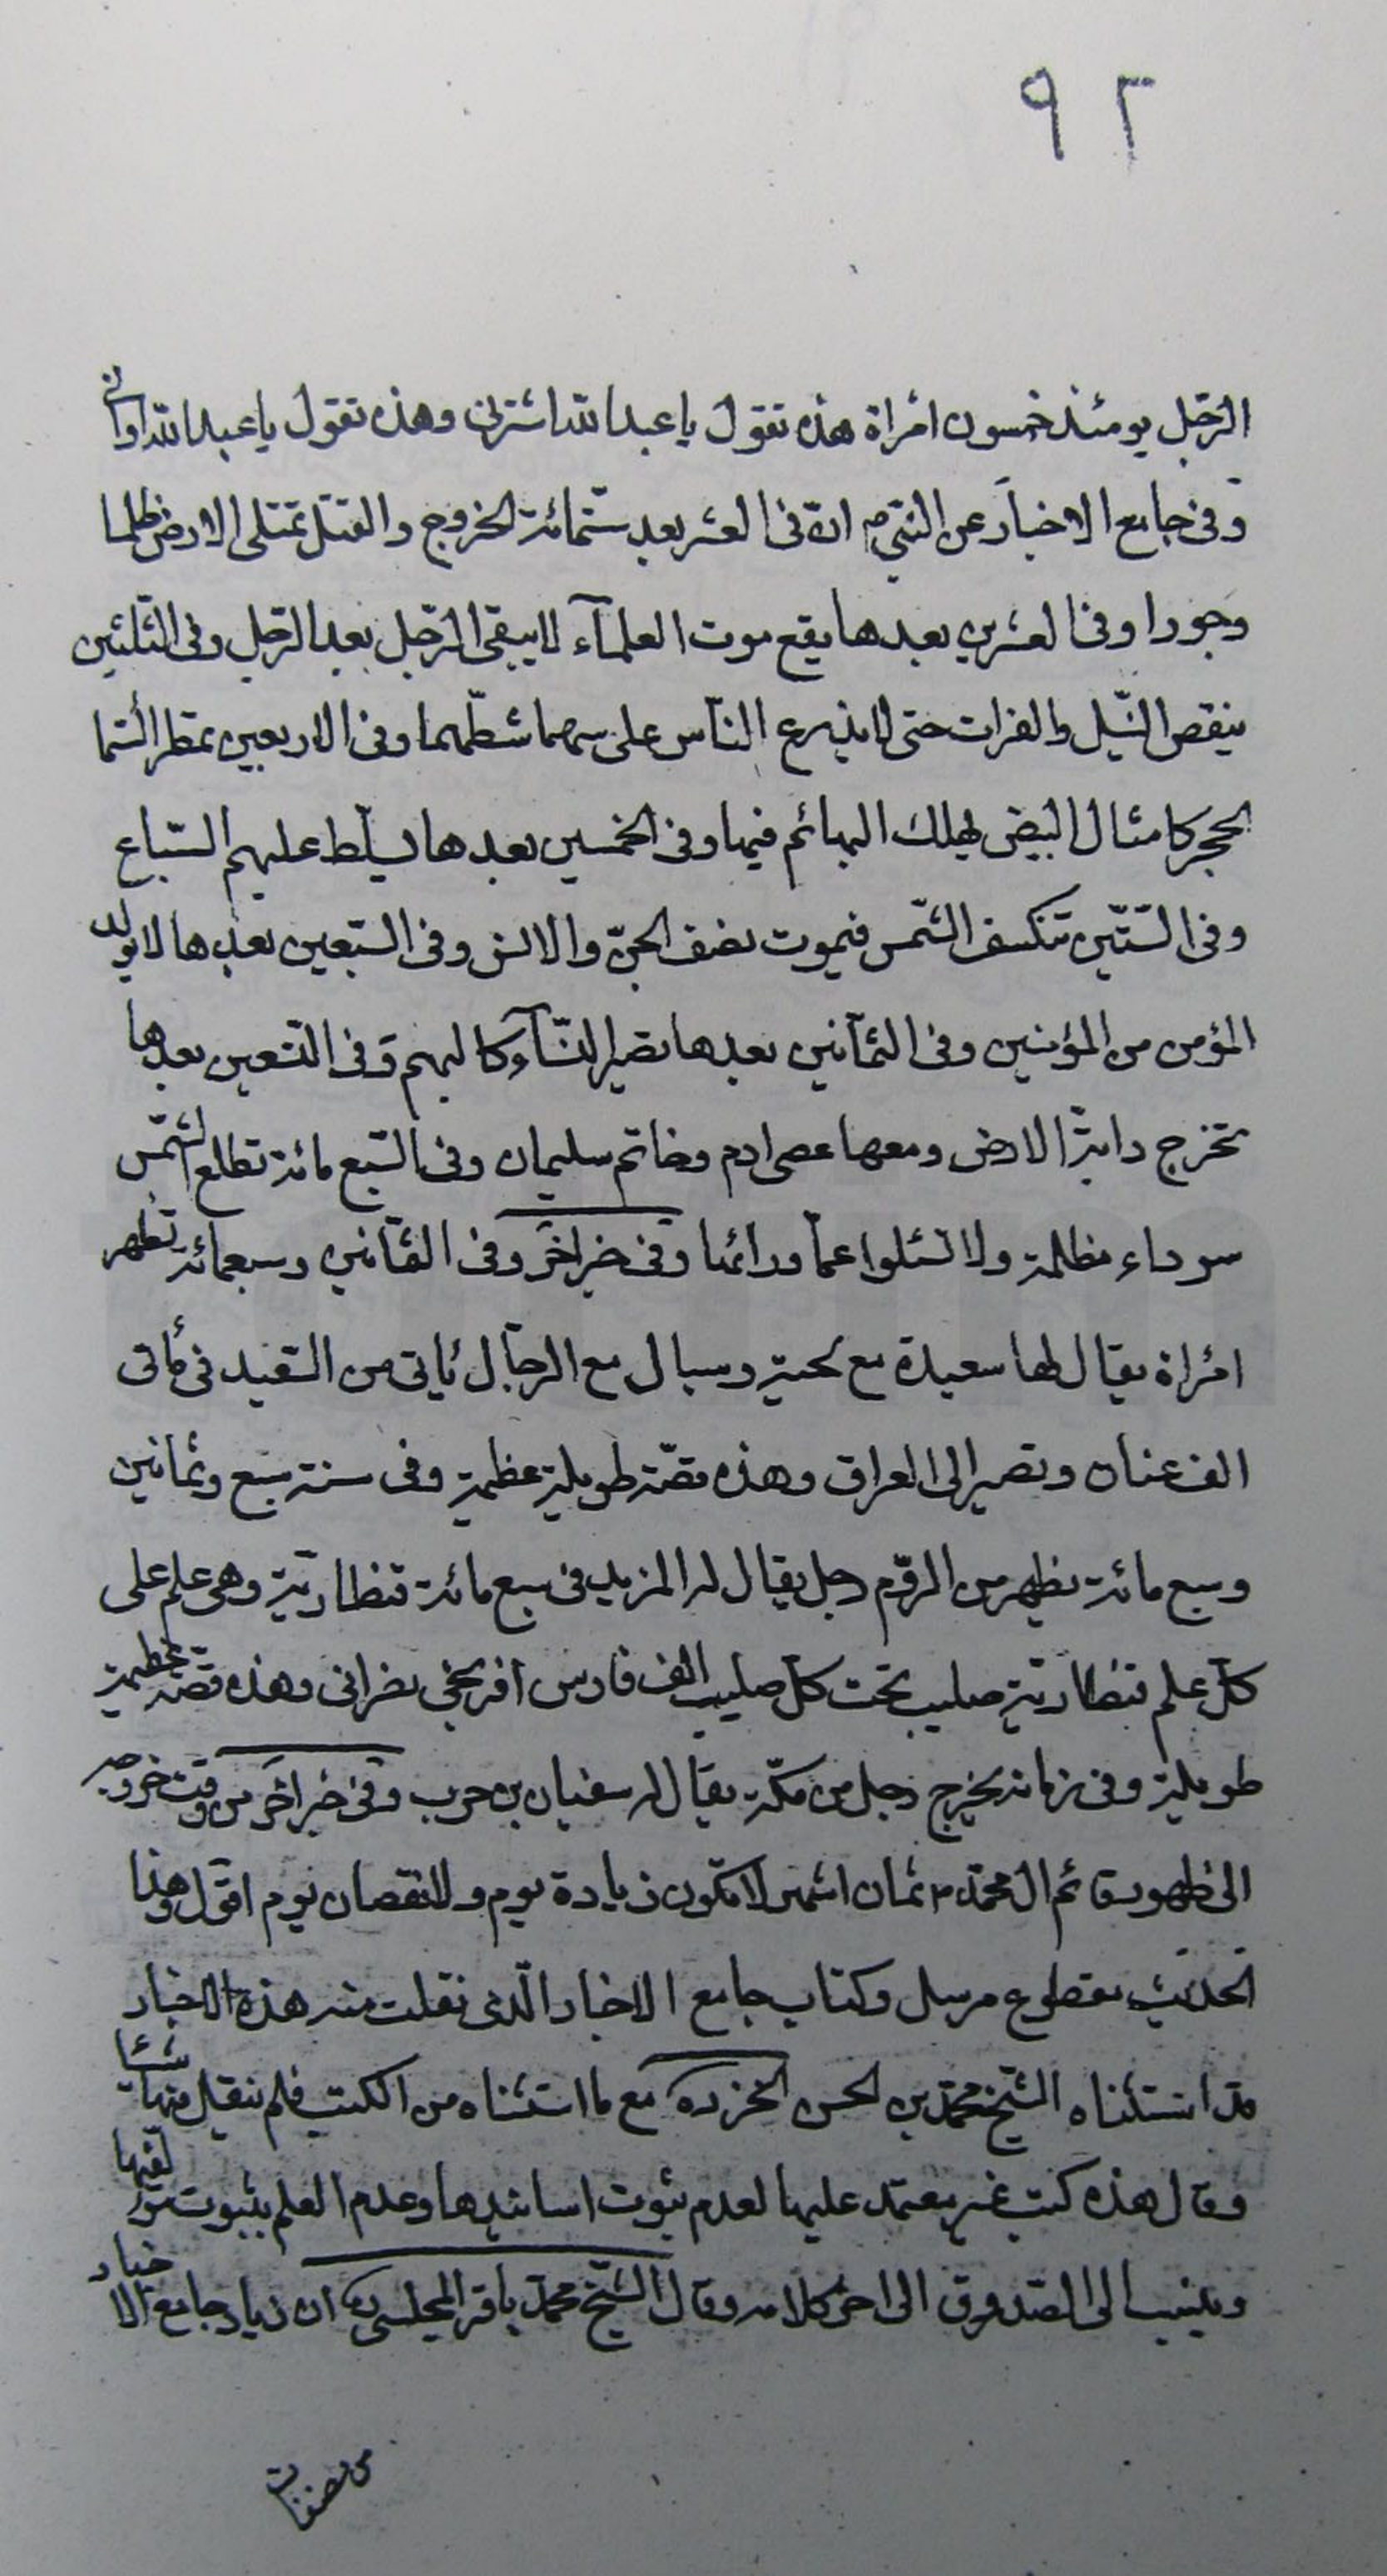 ٩٢
الرّجل يومئذ خمسون امراة هذه تقول يا عبد الله اشترنى وهذه تقول يا عبد الله اوانى
وفى جامع الاخبار عن النبىّ ص انّه فى العشر بعد ستّمائة الخروج والقتل تمتلى الارض ظلما
وجورا وفى العشرين بعدها يقع موت العلمآء لا يبقى الرّجل بعد الرّجل وفى الثّلثين
ينقص النّيل والفرات حتى لا يذرع النّاس على سهما شطّهما وفى الاربعين تمطر السّما
الحجر كامثال البيض يهلك البهائم فيها وفى الخمسين بعدها يسلّط عليهم السّباع
وفى السّتّين تنكسف الشّمس فيموت نصف الجنّ والانس وفى السّبعين بعدها لا يولد
المؤمن من المؤمنين وفى الثّمانين بعدها تصير النّسآء كالبهم وفى التّسعين بعدها
تخرج دابّة الارض ومعها عصى ادم وخاتم سليمان وفى السّبع مائة تطلع الشّمس
سوداء مظلمة ولا تسئلوا عمّا ورائها وفى خبر اخر وفى الثّمانين وسبعمائة تظهر
امراة يقال لها سعيدة مع لحية وسبال مع الرجال ياتى من الصّعيد فى مأتى
الف عنان وتصير الى العراق وهذه قصّة طويلة عظيمة وفى سنة سبع وثمانين
وسبع مائة يظهر من الرّوم رجل يقال له المزيد فى سبع مائة قنطاريّة وهى علم على
كلّ علم قنطاريّة صليب تحت كلّ صليب الف فارس افرنجى نصرانى وهذه قصّة عظيمة
طويلة وفى زمانه يخرج رجل من مكّة يقال له سفيان بن حرب وفى خبر اخر من وقت خروجه
الى ظهور قائم ال محمّد م ثمان اشهر لا تكون زيادة يوم ولا نقصان يوم اقول وهذا
الحديث مقطوع مرسل وكتاب جامع الاخبار الّذى نقلت منه هذه الاخبار
قد استثناه الشّيخ محمّد بن الحسن الحر ره مع ما استثناه من الكتب فلم ينقل منها شيئا
وقال هذه كتب غير معتمد عليها لعدم ثبوت اسانيدها وعدم العلم بثبوت مؤلّفيها
وينسب الى الصّدوق الى اخر كلامه وقال الشّيخ محمّد باقر المجلسى ره ان زياد جامع الاخبار